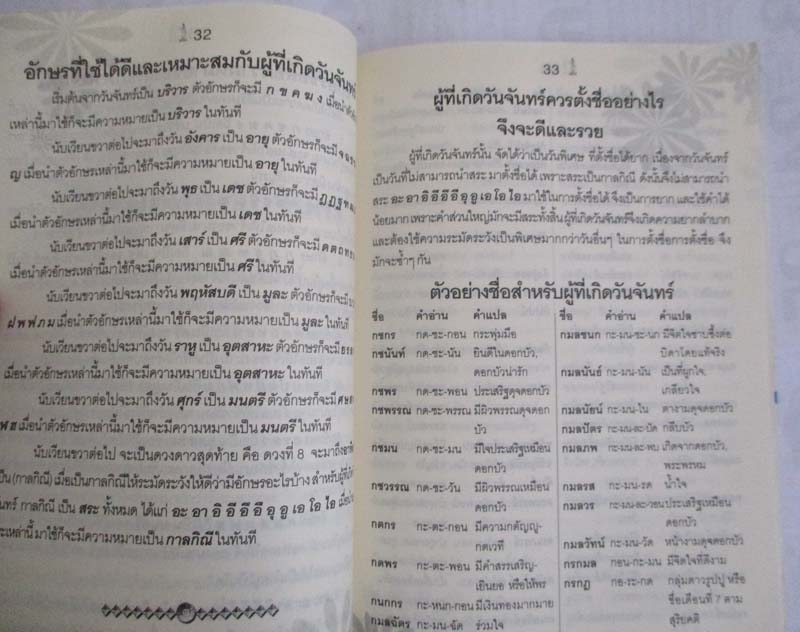 32
อักษรที่ใช้ได้ดีและเหมาะสมกับผู้ที่เกิดวันจันทร์
เริ่มต้นจากวันจันทร์เป็น บริวาร ตัวอักษรก็จะมี ก ข ค ฆ ง เมื่อนำตัว
เหล่านี้มาใช้ก็จะมีความหมายเป็น บริวาร ในทันที
นับเวียนขวาต่อไปจะมาถึงวัน อังคาร เป็น อายุ ตัวอักษรก็จะมี จ ฉ
ญ เมื่อนำตัวอักษรเหล่านี้มาใช้ก็จะมีความหมายเป็น อายุ ในทันที
นับเวียนขวาต่อไปจะมาถึงวัน พุธ เป็น เดช ตัวอักษรก็จะมี ฎ ฏ ฐ ฑ
เมื่อนำตัวอักษรเหล่านี้มาใช้ก็จะมีความหมายเป็น เดช ในทันที
นับเวียนขวาต่อไปจะมาถึงวัน เสาร์ เป็น ศรี ตัวอักษรก็จะมี ด ต ถ ท
เมื่อนำตัวอักษรเหล่านี้มาใช้ก็จะมีความหมายเป็น ศรี ในทันที
นับเวียนขวาต่อไปจะมาถึงวัน พฤหัสบดี เป็น มูละ ตัวอักษรก็จะมี
ฝ พ ฟ ภ ม เมื่อนำตัวอักษรเหล่านี้มาใช้ก็จะมีความหมายเป็น มูละ ในทันที
นับเวียนขวาต่อไปจะมาถึงวัน ราหู เป็น อุตสาหะ ตัวอักษรก็จะมี
เมื่อนำตัวอักษรเหล่านี้มาใช้ก็จะมีความหมายเป็น อุตสาหะ ในทันที
นับเวียนขวาต่อไปจะมาถึงวัน ศุกร์ เป็น มนตรี ตัวอักษรก็จะมี ศ ษ
ฬ ฮ เมื่อนำตัวอักษรเหล่านี้มาใช้ก็จะมีความหมายเป็น มนตรี ในทันที
นับเวียนขวาต่อไป จะเป็นดวงดาวสุดท้าย คือ ดวงที่ 8 จะมาถึง
เป็น (กาลกิณี) เมื่อเป็นกาลกิณีให้ระมัดระวังให้ดีว่ามีอักษรอะไรบ้าง สำหรับผู้ที่เกิด
กาลกิณี เป็น สระ ทั้งหมด ได้แก่ อะ อา อิ อี อึ อื อุ อู เอ โอ ไอ เมื่อ
เหล่านี้มาใช้ก็จะมีความหมายเป็น กาลกิณี ในทันที
33
ผู้ที่เกิดวันจันทร์ควรตั้งชื่ออย่างไร
จึงจะดีและรวย
ผู้ที่เกิดวันจันทร์นั้น จัดได้ว่าเป็นวันพิเศษ ที่ตั้งชื่อได้ยาก เนื่องจากวันจันทร์
เป็นวันที่ไม่สามารถนำสระ มาตั้งชื่อได้ เพราะสระเป็นกาลกิณี ดังนั้นจึงไม่สามารถนำ
สระ อะ อา อิ อี อึ อื อุ อู เอ โอ ไอ มาใช้ในการตั้งชื่อได้ จึงเป็นการยาก และใช้คำได้
น้อยมาก เพราะคำส่วนใหญ่มักจะมีสระทั้งสิ้น ผู้ที่เกิดวันจันทร์จึงเกิดความยากลำบาก
และต้องใช้ความระมัดระวังเป็นพิเศษมากกว่าวันอื่นๆ ในการตั้งชื่อการตั้งชื่อ จึง
มักจะซ้ำๆ กัน
ตัวอย่างชื่อสำหรับผู้ที่เกิดวันจันทร์
ชื่อ คำอ่าน คำแปล
กชกร กด-ชะ-กอน กระพุ่มมือ
กชนันท์ กด-ชะ-นัน ยินดีในดอกบัว,
ดอกบัวน่ารัก
กชพร กด-ชะ-พอน ประเสริฐดุจดอกบัว
กชพรรณ กด-ชะ-พรรณ มีผิวพรรณดุจดอก
บัว
กชมน กด-ชะ-มน มีใจประเสริฐเหมือน
ดอกบัว
กชวรรณ กด-ชะ-วัน มีผิวพรรณเหมือน
ดอกบัว
กตกร กะ-ตะ-กอน มีความกตัญญู-
กตเวที
กตพร กะ-ตะ-พอน มีคำสรรเสริญ-
เยินยอ หรือให้พร
กนกกร กะ-หนก-กอน มีเงินทองมากมาย
กมลฉัตร กะ-มน-ฉัด ร่วมใจ
ชื่อ คำอ่าน คำแปล
กมลชนก กะ-มน-ชะ-นก มีจิตใจซาบซึ้งต่อ
บิดาโดยแท้จริง
กมลนันธ์ กะ-มน-นัน เป็นที่ผูกใจ,
เกลียวใจ
กมลนัยน์ กะ-มน-ไน ตางามดุจดอกบัว
กมลปัตร กะ-มน-ละ-ปัด กลีบบัว
กมลภพ กะ-มน-ละ-พบ เกิดจากดอกบัว,
พระพรหม
กมลรส กะ-มน-รด น้ำใจ
กมลวร กะ-มน-ละ-วอน ประเสริฐเหมือน
ดอกบัว
กมลวัทน์ กะ-มน-วัด หน้างามดุจดอกบัว
กรกมล กอน-กะ-มน มีจิตใจที่ดีงาม
กรกฎ กอ-ระ-กด กลุ่มดาวรูปปู หรือ
ชื่อเดือนที่ 7 ตาม
สุริยคติ